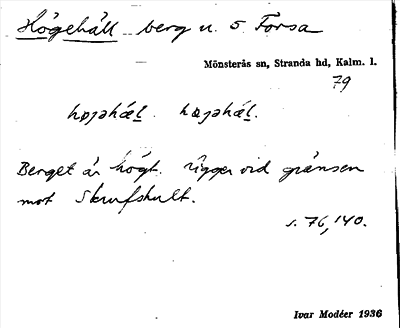 Högehäll berg u. 5 Forsa
Mönsterås sn, Stranda hd, Kalm. l.
79
Berget är högt. ligger vid gränsen
mot Skrufshult.
s. 76,140.
Ivar Modéer 1936